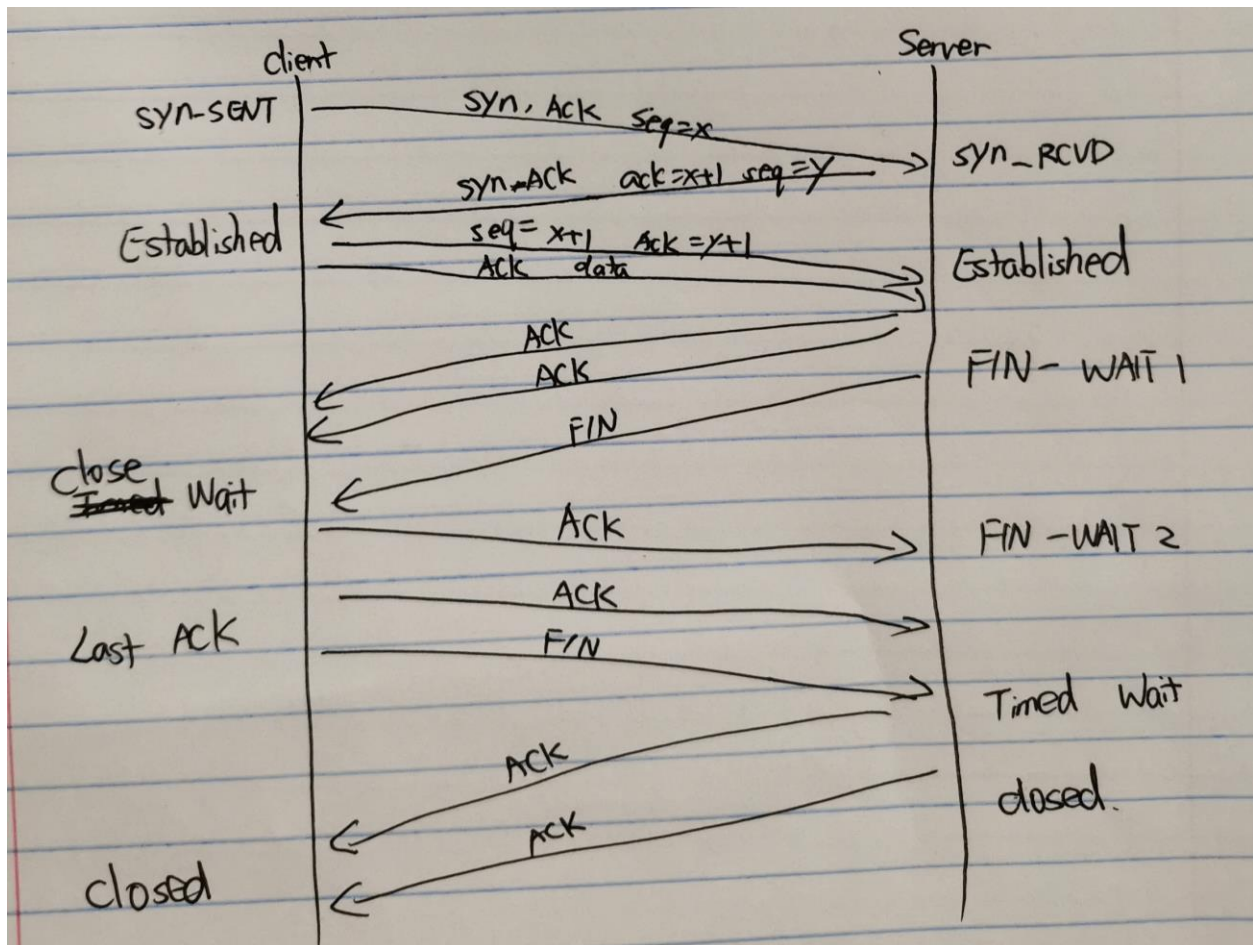 client Server
SYN-SENT SYN, ACK seq=x
SYN_RCVD
SYN-ACK ack=x+1 seq=y
Established seq= x+1 Ack=y+1 Established
ACK data
ACK
ACK FIN- WAIT 1
FIN
Close
Wait
ACK FIN-WAIT 2
ACK
Last ACK FIN
Timed Wait
ACK
closed.
ACK
Closed